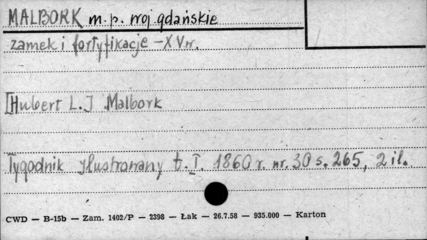 MALBORK m.p. woj gdańskie
zamek i fortyfikacje - XV w.
[Hubert L.] Malbork
Tygodnik Ilustrowany t. I. 1860 r. nr. 30 s. 265, 2 il.
CWD — B-15b — Zam. 1402/P — 2398 — Łak — 26.7.58 — 935.000 — Karton